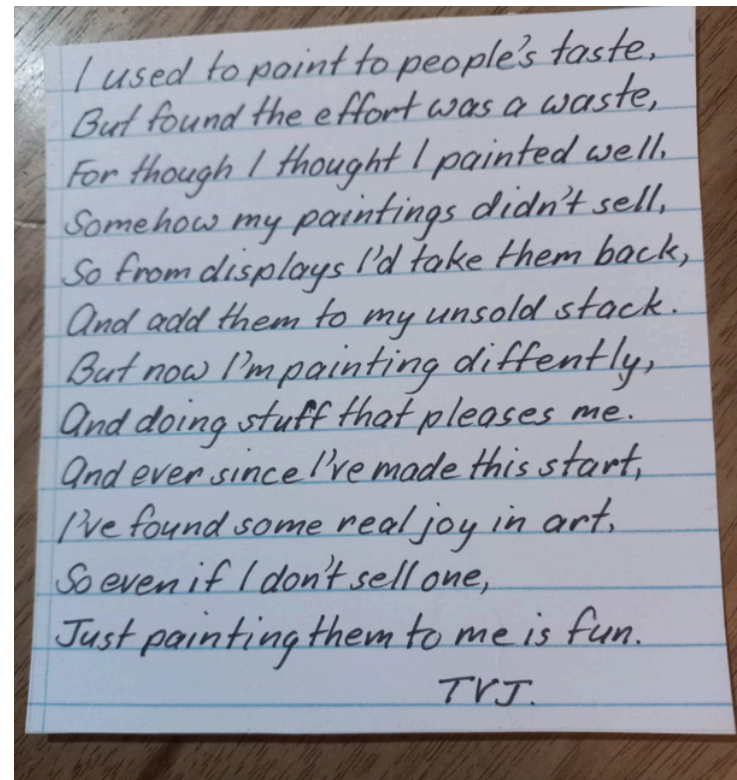 I used to paint to people's taste,
But found the effort was a waste,
For though I thought I painted well,
Somehow my paintings didn't sell,
So from displays I'd take them back,
And add them to my unsold stack.
But now I'm painting diffently,
And doing stuff that pleases me.
And ever since I've made this start,
I've found some real joy in art,
So even if I don't sell one,
Just painting them to me is fun.
TVJ.